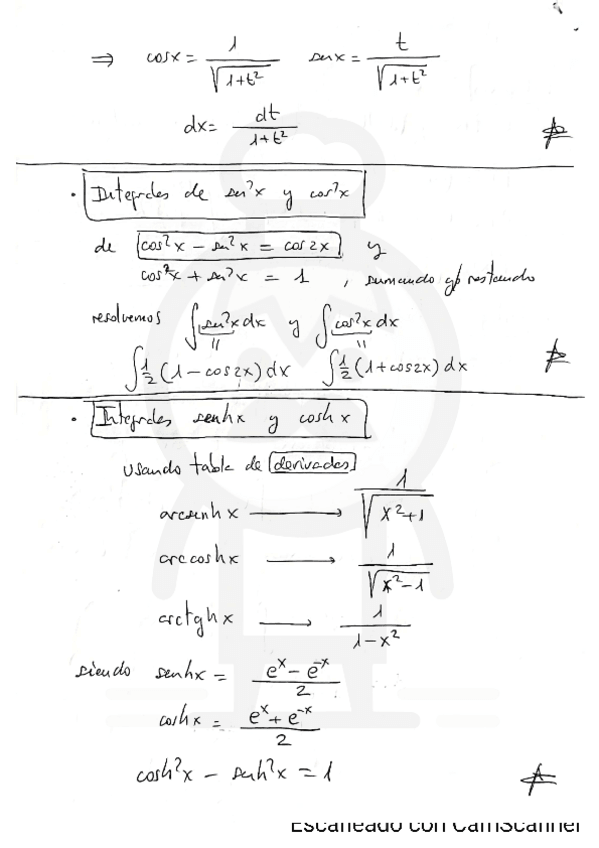 ⇒ cosx = 1/√(1+t²) senx = t/√(1+t²)
dx = dt/(1+t²)
· Integrales de sen²x y cos²x
de cos²x − sen²x = cos2x y
cos²x + sen²x = 1 , sumando y/o restando
resolvemos ∫sen²x dx y ∫cos²x dx
∫½(1−cos2x)dx ∫½(1+cos2x)dx
· Integrales senhx y coshx
Usando tabla de derivadas
arcsenh x ⟶ 1/√(x²+1)
arccoshx ⟶ 1/√(x²−1)
arctghx ⟶ 1/(1−x²)
siendo senhx = (eˣ − e⁻ˣ)/2
coshx = (eˣ + e⁻ˣ)/2
cosh²x − senh²x = 1
Escaneado con CamScanner